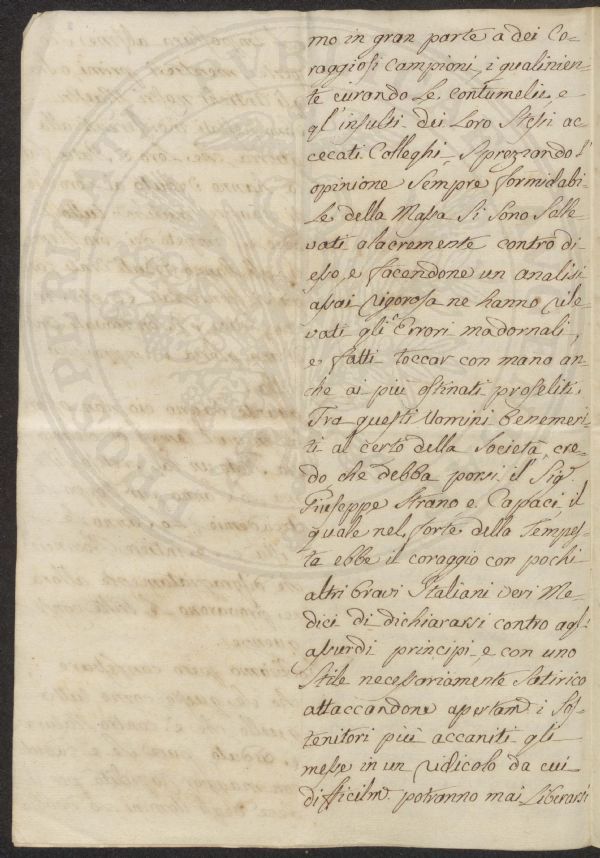 mo in gran parte a dei Co=
raggiosi campioni, i quali nien=
te curando le contumelie, e
gl'insulti dei Loro Stessi ac
cecati Colleghi, Sprezzando l'
opinione Sempre formidabi=
le della Massa Si Sono Solle
vati alacremente contro di
esso, e facendone un analisi
assai rigorosa ne hanno rile
vati gli Errori madornali,
e fatti toccar con mano an=
che ai più ostinati proseliti.
Tra questi Uomini benemeri
ti al certo della Società, cre=
do che debba porsi il Sig.r
Giuseppe Strano e Capaci il
quale nel forte della Tempes=
ta ebbe il coraggio con pochi
altri bravi Italiani veri Me=
dici di dichiararsi contro agl'
assurdi principi, e con uno
Stile necessariamente Satirico
attaccandone apertam. i Sos=
tenitori più accaniti gli
messe in un ridicolo da cui
difficilm. potranno mai Liberarsi